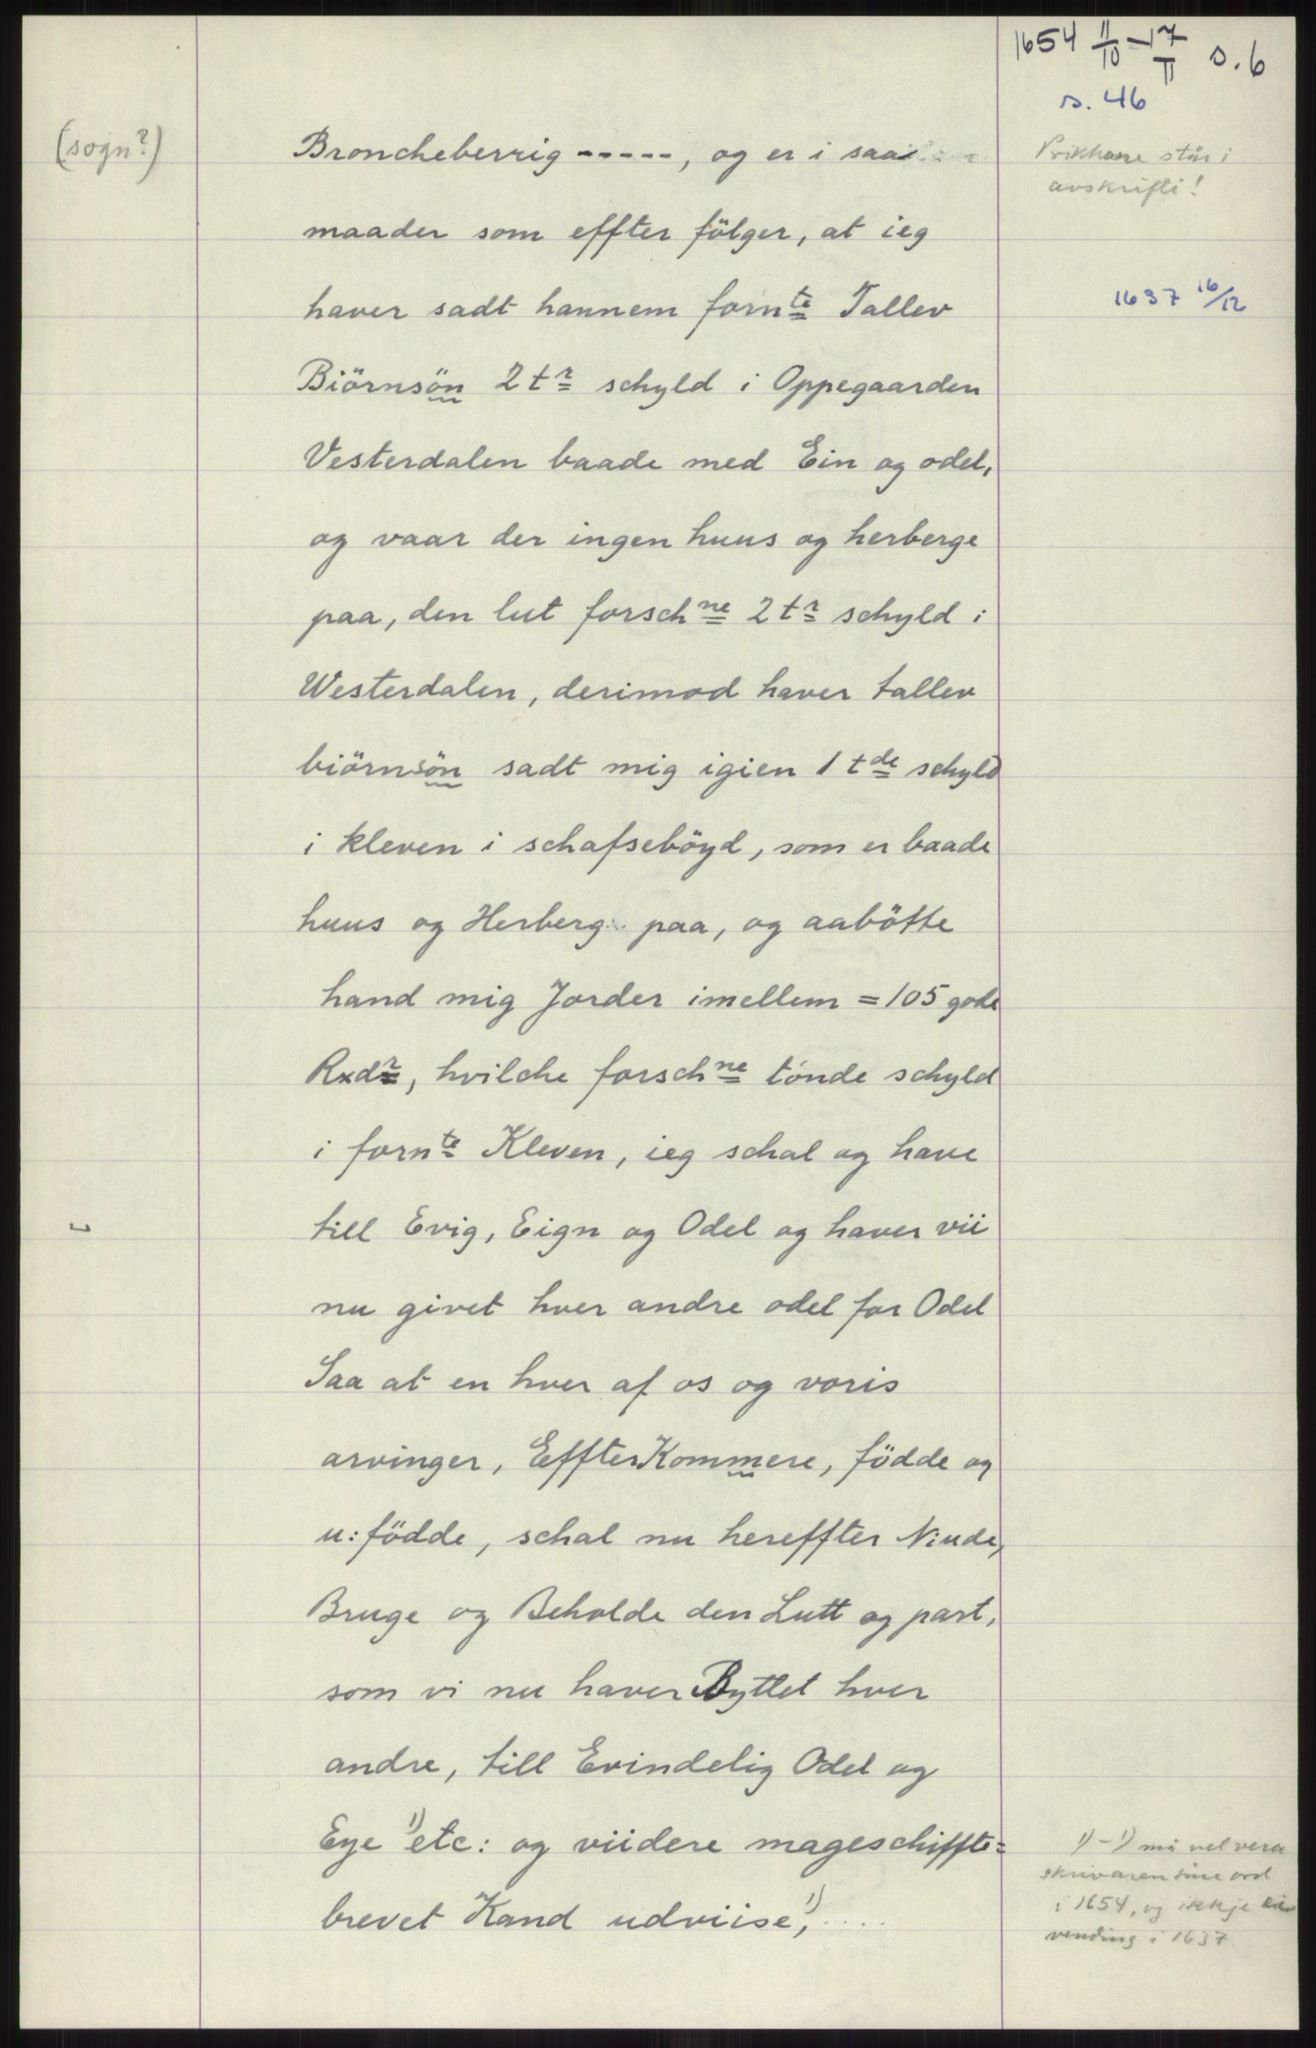 1654 11/10 – 17/11 s. 6
s. 46
(sogn?)
Prikkane står i
avskrifti!
1637 16/12
Broncheberrig -----, og er i saa
maader som effter fölger, at ieg
haver sadt hannem fornte Tallev
Biörnsön 2 tr schyld i Oppegaarden
Vesterdalen baade med Ein og odel,
og vaar der ingen huus og herberge
paa, den lut forschne 2 tr schyld i
Westerdalen, derimod haver tallev
biörnsön sadt mig igien 1 tde schyld
i kleven i schafseböyd, som er baade
huus og Herberg paa, og aabötte
hand mig Jorder imellem = 105 gode
Rxdr, hvilche forschne tönde schyld
i fornte Kleven, ieg schal og have
till Evig, Eign og Odel og haver vii
nu givet hver andre odel for Odel
Saa at en hver af os og voris
arvinger, EffterKommere, födde og
u:födde, schal nu hereffter Niude,
Bruge og Beholde den Lutt og part,
som vi nu haver Byttet hver
andre, till Evindelig Odel og
Eye 1) etc: og viidere mageschiffte=
brevet Kand udviise, 1) ....
1) – 1) må vel vera
skrivaren sine ord
i 1654, og ikkje ei
vending i 1637